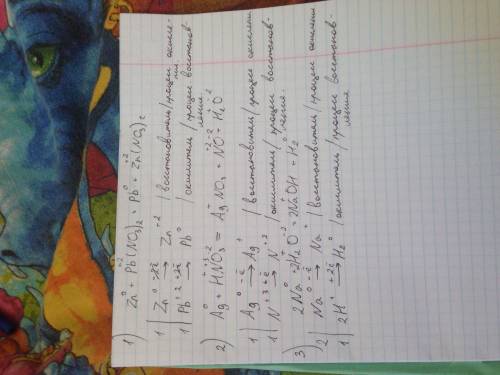 1) Zn⁰ + Pb⁺²(NO₃)₂ = Pb⁰ + Zn⁺²(NO₃)₂
1 | Zn⁰ -2ē → Zn⁺² | восстановитель/процесс окисле-
ния.
1 | Pb⁺² +2ē → Pb⁰ | окислитель/процесс восстанов-
ления.
2) Ag⁰ + HNO₃ = AgNO₃ + NO + H₂O
1 | Ag⁰ -ē → Ag⁺ | восстановитель/процесс окисления
1 | N⁺ +3ē → N⁺² | окислитель/процесс восстанов-
ления.
3) 2Na⁰ + 2H₂O = 2NaOH + H₂⁰
2 | Na⁰ -ē → Na⁺ | восстановитель/процесс окисления
1 | 2H⁺ +2ē → H₂⁰ | окислитель/процесс восстанов-
ления